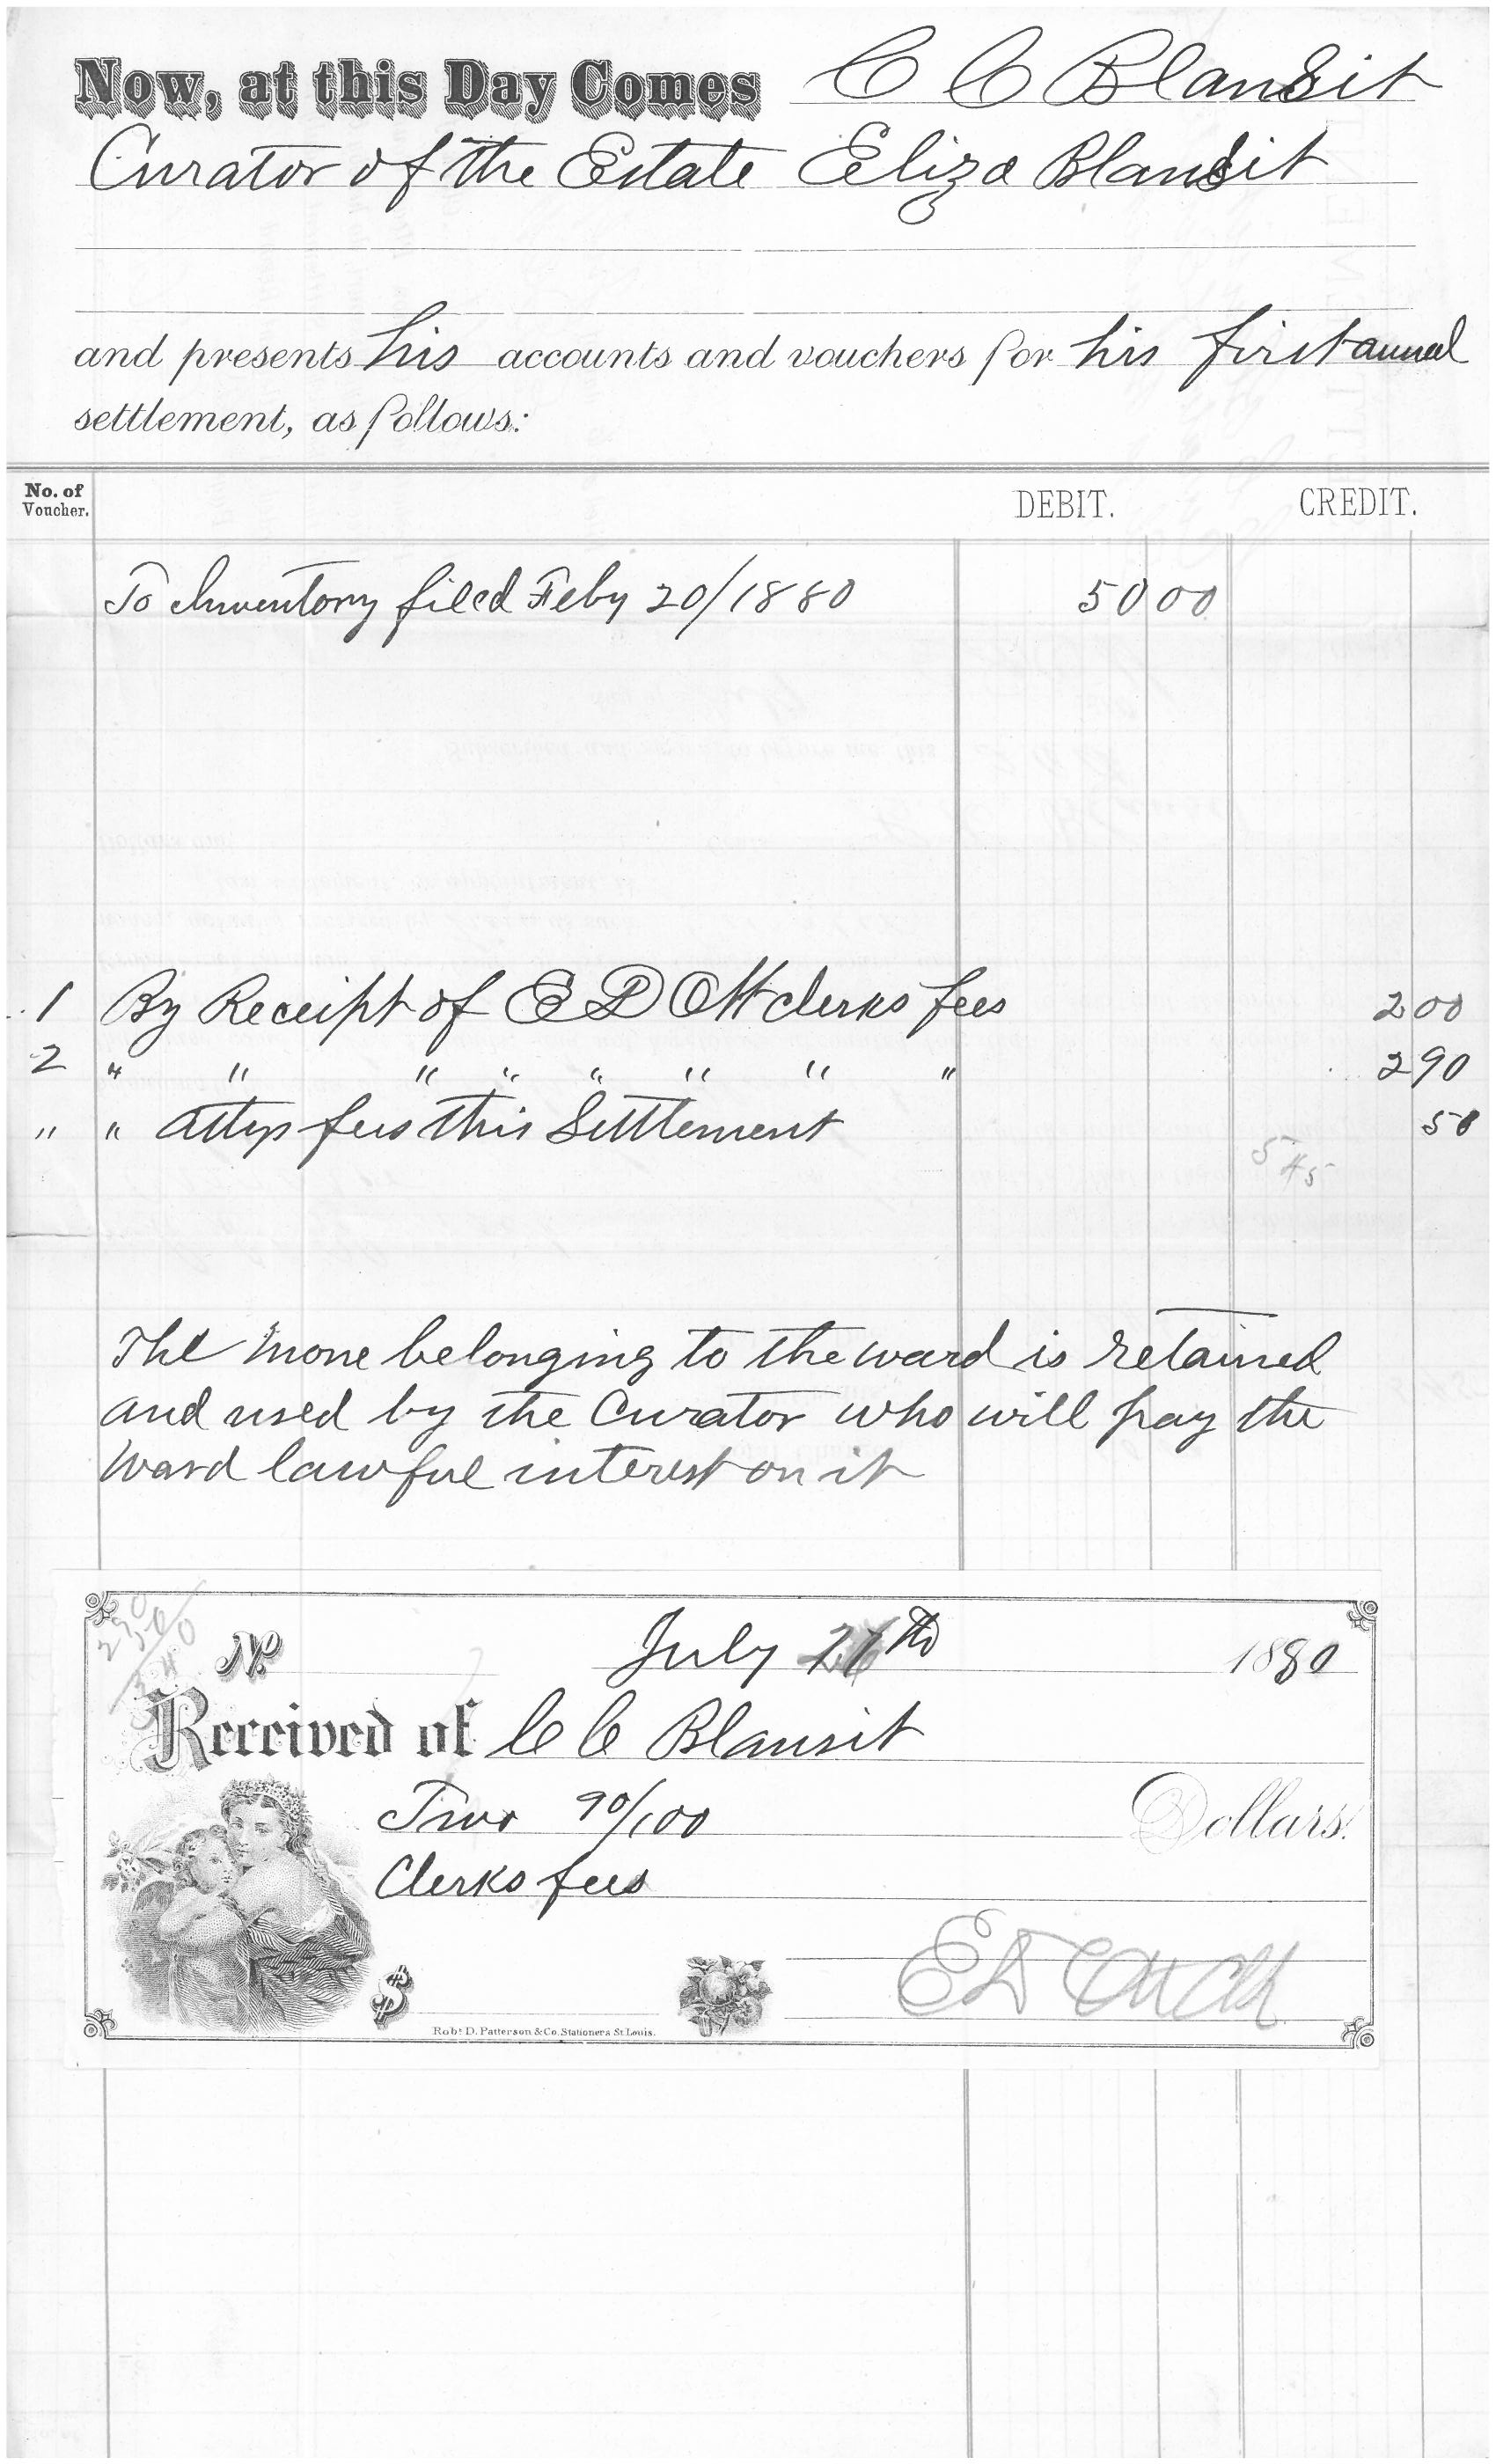 Now, at this Day Comes C C Blansit
Curator of the Estate Eliza Blansit
and presents his accounts and vouchers for his first annual
settlement, as follows:
No. of Voucher. DEBIT. CREDIT.
To Inventory filed Feby 20/1880 50 00
1 By Receipt of E D Ott clerks fees 2 00
2 " " " " " " " " 2 90
" " Attys fees this Settlement 50
5 45
The mone belonging to the ward is retained
and used by the Curator who will pay the
ward lawful interest on it
2 90
50
3 40
No July th 1880
Received of C C Blansit
Two 90/100 Dollars.
Clerks fees
E D Ott Clk
$
Robt. D. Patterson & Co. Stationers St. Louis.